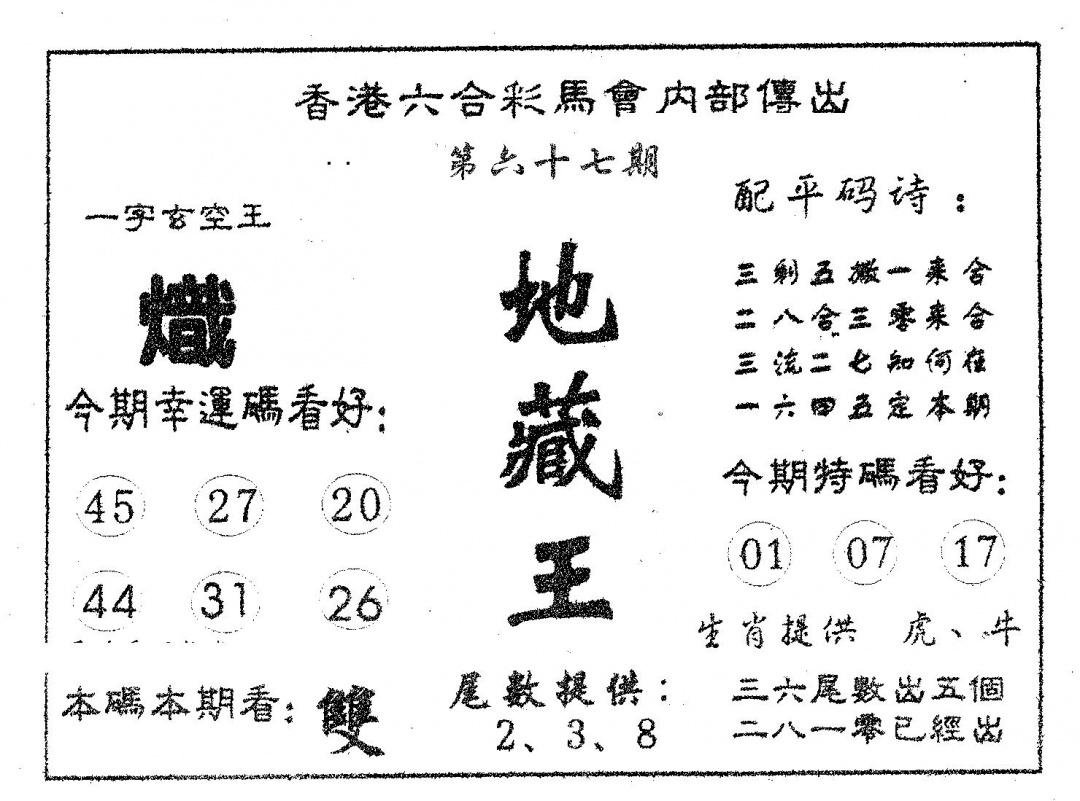 香港六合彩馬會内部傳出
第六十七期
一字玄空王
熾
今期幸運碼看好：
45 27 20
44 31 26
本碼本期看：雙
地藏王
尾數提供：
2、3、8
配平码诗：
三剩五搬一来合
二八合三零来合
三流二七知何在
一六四五定本期
今期特碼看好：
01 07 17
生肖提供 虎、牛
三六尾數出五個
二八一零已經出